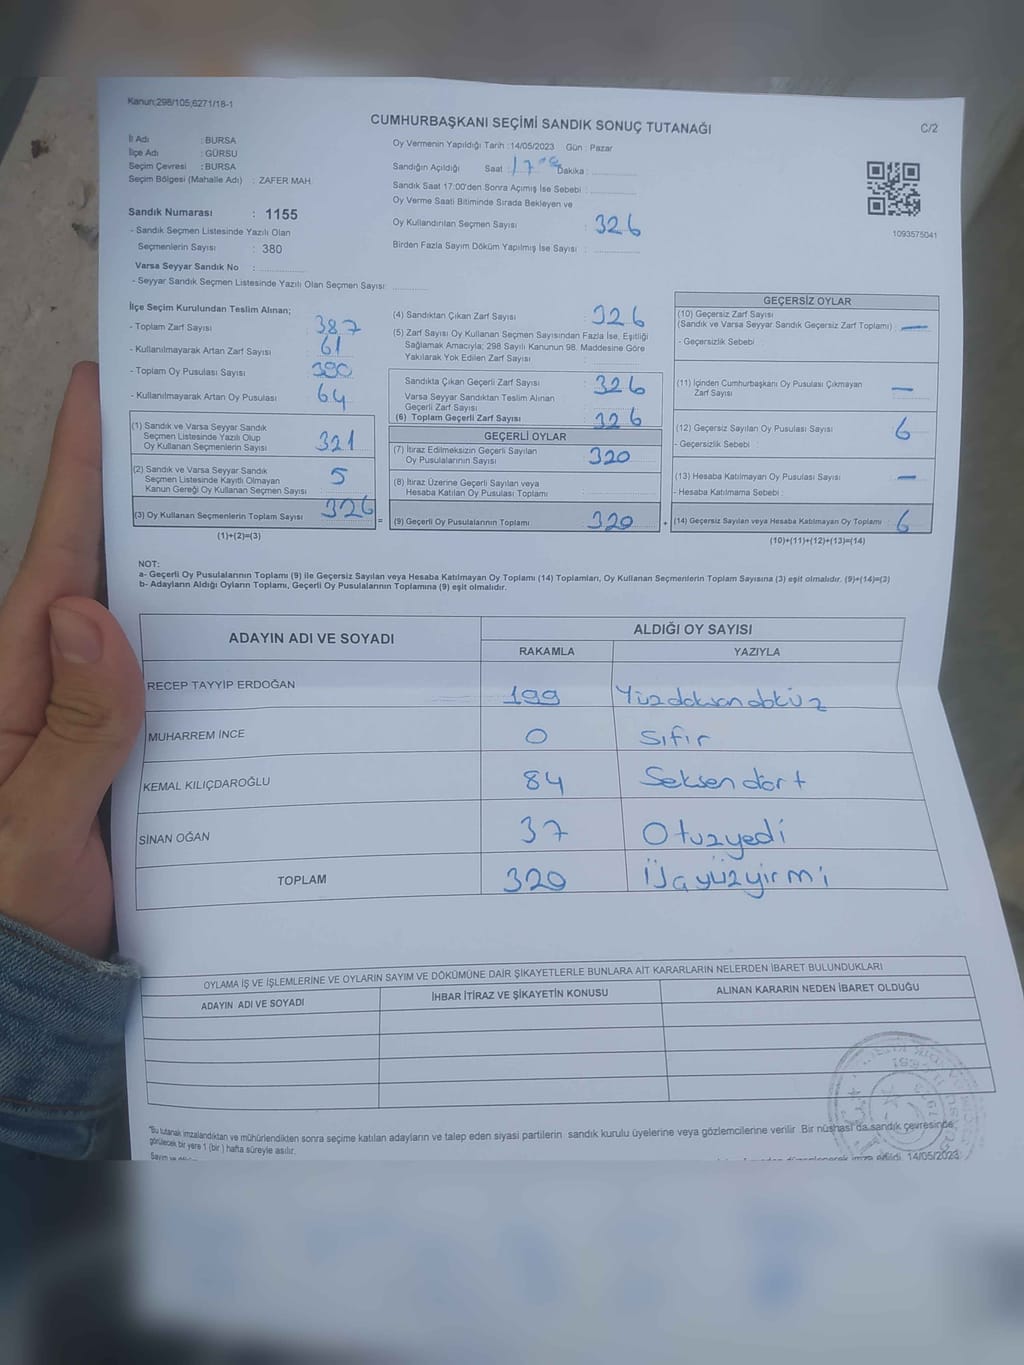 Kanun;298/105,6271/18-1
CUMHURBAŞKANI SEÇİMİ SANDIK SONUÇ TUTANAĞI
C/2
İl Adı : BURSA
İlçe Adı : GÜRSU
Seçim Çevresi : BURSA
Seçim Bölgesi (Mahalle Adı) : ZAFER MAH.
Sandık Numarası : 1155
- Sandık Seçmen Listesinde Yazılı Olan
Seçmenlerin Sayısı : 380
Varsa Seyyar Sandık No :
- Seyyar Sandık Seçmen Listesinde Yazılı Olan Seçmen Sayısı:
Oy Vermenin Yapıldığı Tarih :14/05/2023 Gün : Pazar
Sandığın Açıldığı Saat : 17 00 Dakika :
Sandık Saat 17:00'den Sonra Açımış İse Sebebi :
Oy Verme Saati Bitiminde Sırada Bekleyen ve
Oy Kullandırılan Seçmen Sayısı : 326
Birden Fazla Sayım Döküm Yapılmış İse Sayısı :
1093575041
İlçe Seçim Kurulundan Teslim Alınan;
- Toplam Zarf Sayısı : 387
- Kullanılmayarak Artan Zarf Sayısı : 61
- Toplam Oy Pusulası Sayısı : 390
- Kullanılmayarak Artan Oy Pusulası : 64
(1) Sandık ve Varsa Seyyar Sandık
Seçmen Listesinde Yazılı Olup
Oy Kullanan Seçmenlerin Sayısı : 321
(2) Sandık ve Varsa Seyyar Sandık
Seçmen Listesinde Kayıtlı Olmayan
Kanun Gereği Oy Kullanan Seçmen Sayısı : 5
(3) Oy Kullanan Seçmenlerin Toplam Sayısı : 326
(1)+(2)=(3)
(4) Sandıktan Çıkan Zarf Sayısı : 326
(5) Zarf Sayısı Oy Kullanan Seçmen Sayısından Fazla İse, Eşitliği
Sağlamak Amacıyla; 298 Sayılı Kanunun 98. Maddesine Göre
Yakılarak Yok Edilen Zarf Sayısı :
Sandıkta Çıkan Geçerli Zarf Sayısı : 326
Varsa Seyyar Sandıktan Teslim Alınan
Geçerli Zarf Sayısı :
(6) Toplam Geçerli Zarf Sayısı : 326
GEÇERLİ OYLAR
(7) İtiraz Edilmeksizin Geçerli Sayılan
Oy Pusulalarının Sayısı : 320
(8) İtiraz Üzerine Geçerli Sayılan veya
Hesaba Katılan Oy Pusulası Toplamı :
= (9) Geçerli Oy Pusulalarının Toplamı : 320
GEÇERSİZ OYLAR
(10) Geçersiz Zarf Sayısı
(Sandık ve Varsa Seyyar Sandık Geçersiz Zarf Toplamı) : —
- Geçersizlik Sebebi :
(11) İçinden Cumhurbaşkanı Oy Pusulası Çıkmayan
Zarf Sayısı : —
(12) Geçersiz Sayılan Oy Pusulası Sayısı : 6
- Geçersizlik Sebebi :
(13) Hesaba Katılmayan Oy Pusulası Sayısı : —
- Hesaba Katılmama Sebebi :
+ (14) Geçersiz Sayılan veya Hesaba Katılmayan Oy Toplamı : 6
(10)+(11)+(12)+(13)=(14)
NOT:
a- Geçerli Oy Pusulalarının Toplamı (9) ile Geçersiz Sayılan veya Hesaba Katılmayan Oy Toplamı (14) Toplamları, Oy Kullanan Seçmenlerin Toplam Sayısına (3) eşit olmalıdır. (9)+(14)=(3)
b- Adayların Aldığı Oyların Toplamı, Geçerli Oy Pusulalarının Toplamına (9) eşit olmalıdır.
ADAYIN ADI VE SOYADI
ALDIĞI OY SAYISI
RAKAMLA YAZIYLA
RECEP TAYYİP ERDOĞAN 199 Yüzdoksandokuz
MUHARREM İNCE 0 Sıfır
KEMAL KILIÇDAROĞLU 84 Seksendört
SİNAN OĞAN 37 Otuzyedi
TOPLAM 320 Üçyüzyirmi
OYLAMA İŞ VE İŞLEMLERİNE VE OYLARIN SAYIM VE DÖKÜMÜNE DAİR ŞİKAYETLERLE BUNLARA AİT KARARLARIN NELERDEN İBARET BULUNDUKLARI
ADAYIN ADI VE SOYADI İHBAR İTİRAZ VE ŞİKAYETİN KONUSU ALINAN KARARIN NEDEN İBARET OLDUĞU
"Bu tutanak imzalandıktan ve mühürlendikten sonra seçime katılan adayların ve talep eden siyasi partilerin sandık kurulu üyelerine veya gözlemcilerine verilir. Bir nüshası da sandık çevresinde
görülecek bir yere 1 (bir) hafta süreyle asılır.
imza edildi. 14/05/2023